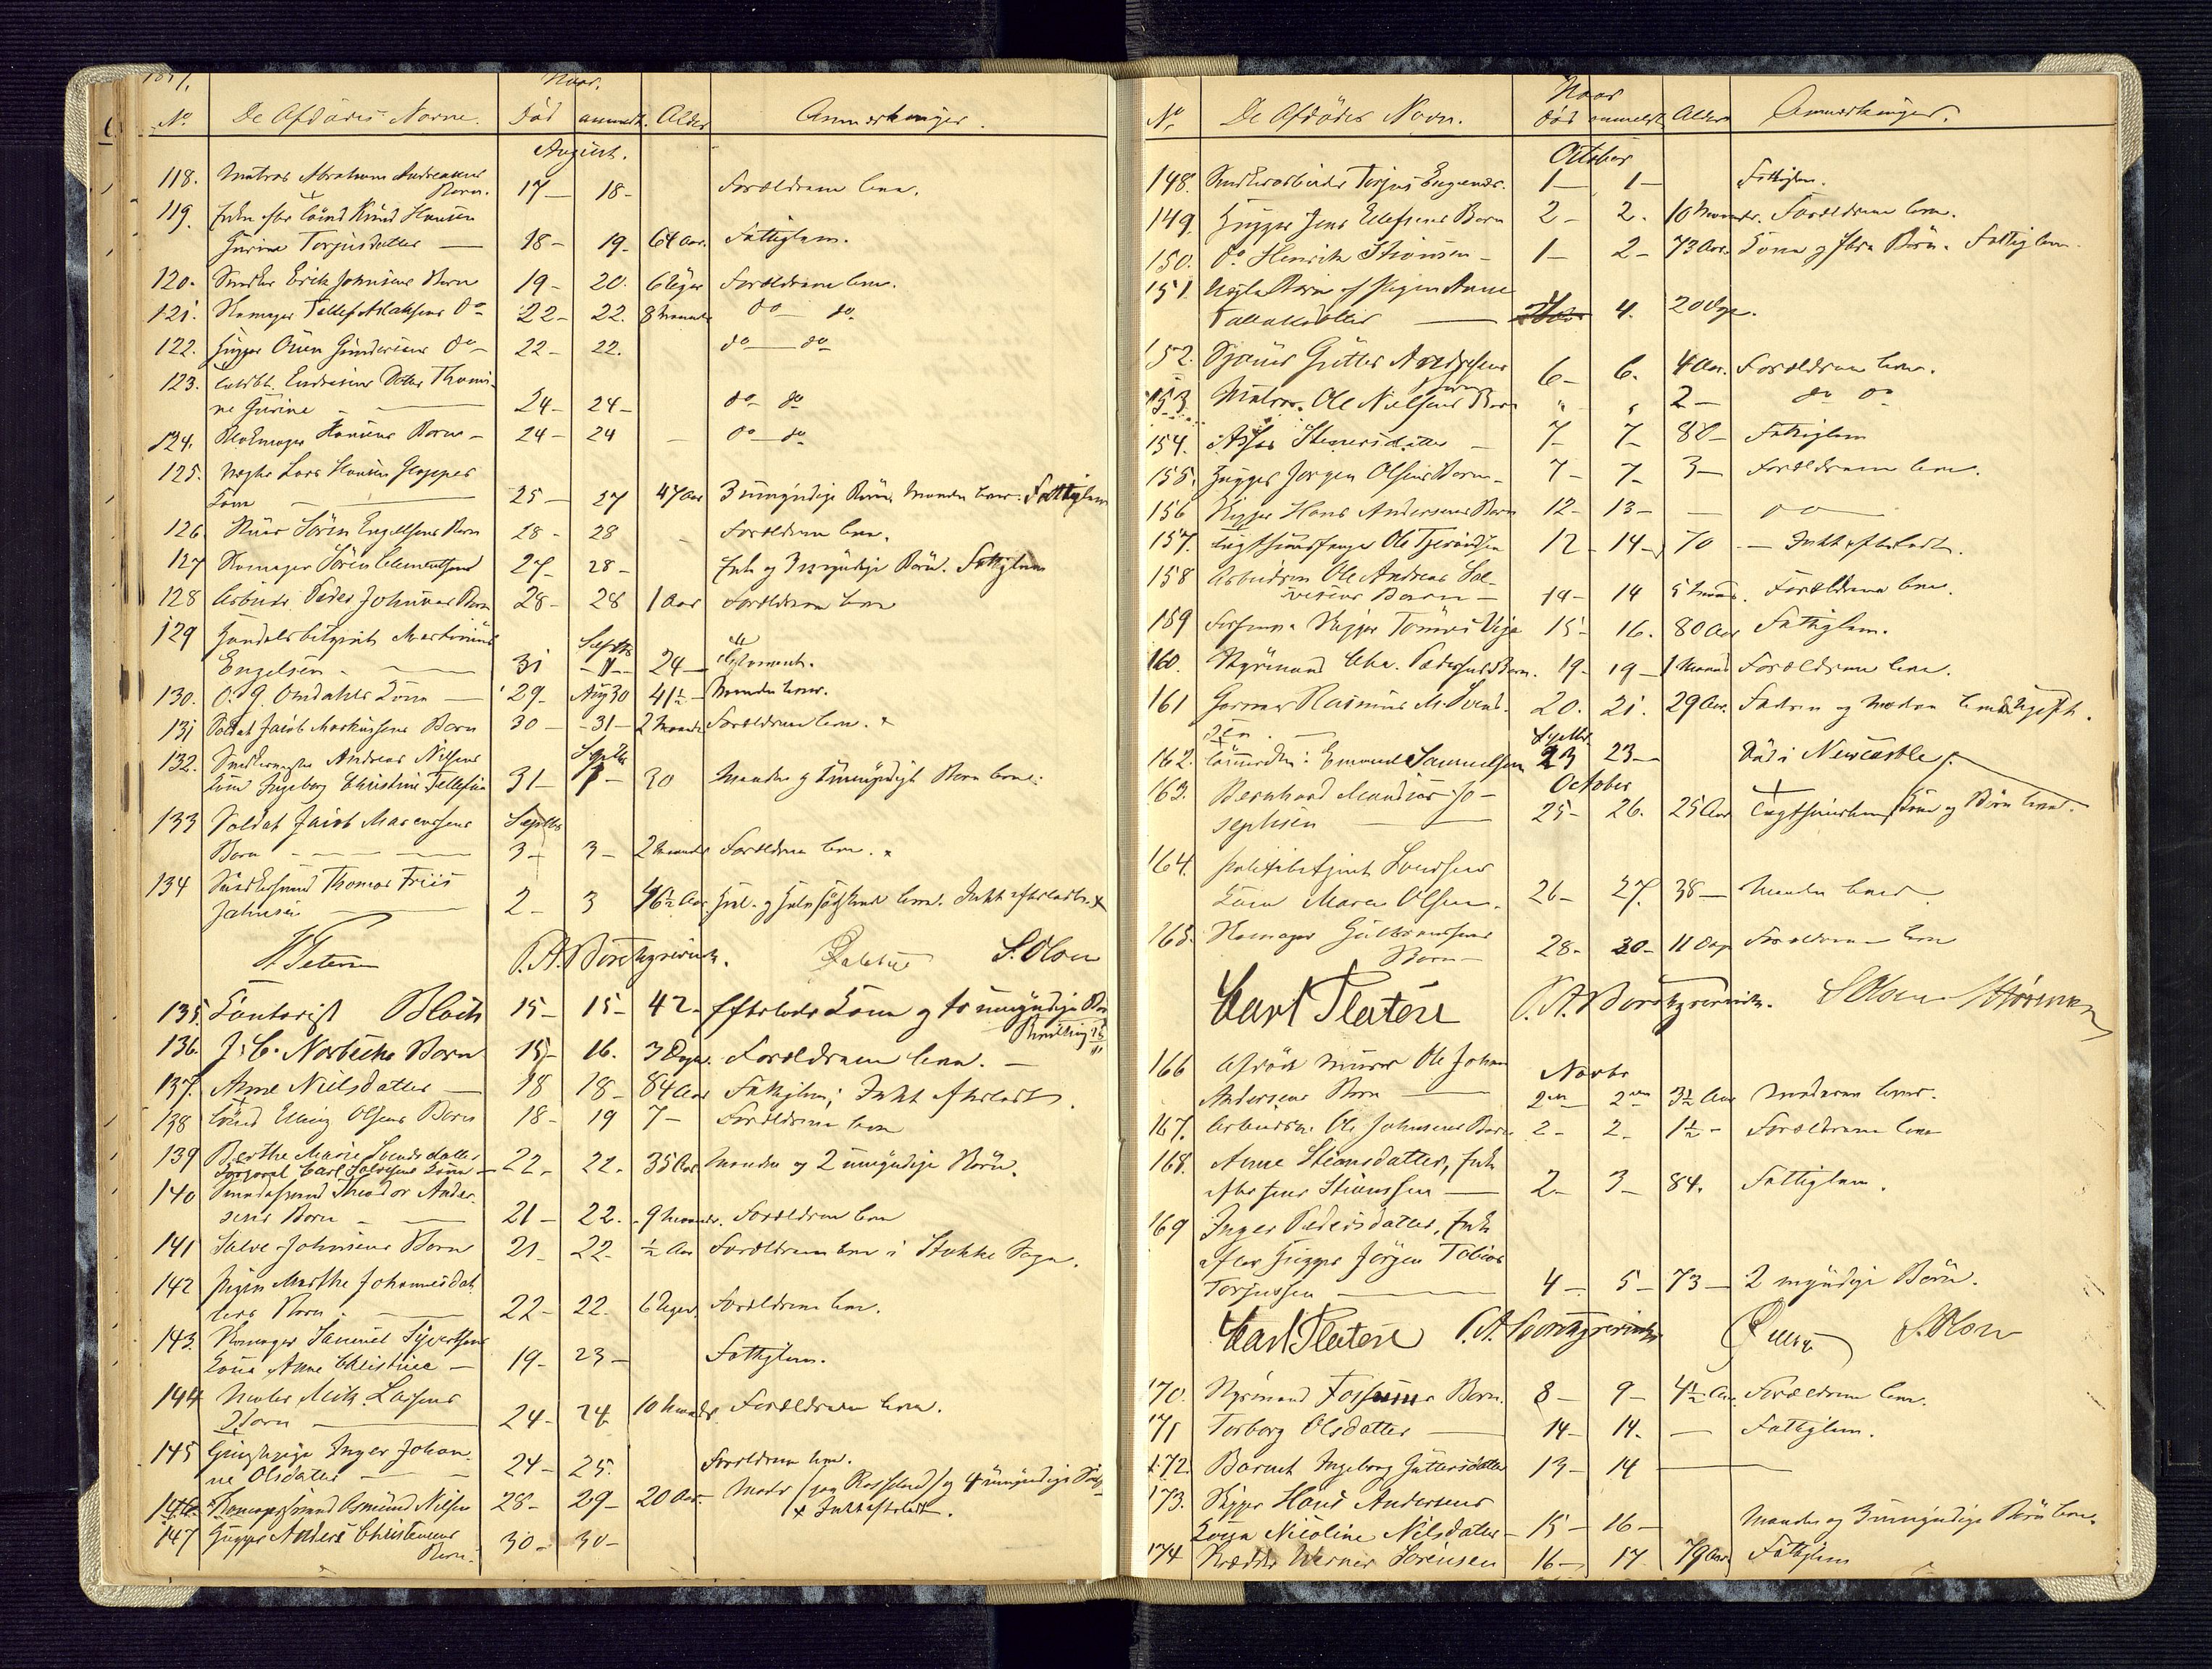 Naar.
No De Afdødes Navne. Død anmeldt. Alder Anmærkninger.
August.
118. Matros Abraham Andreasens
Barn. 17 — 18 - Forældrene leve.
119. Enke efter Knud Hansen
Gurine Torjusdatter — 18 - 19 - 64 Aar. Fattiglem.
120. Snedker Erik Johnsens Barn 19 - 20. 6 Uger Forældrene leve.
121. Skomager Tellef Aslaksens do 22 - 22. 8 Maaneder do — do
122. Hugger Ouen Gundersens do 22 - 22. do — do
123. Endresens Datter Thomi-
ne Gurine — 24 - 24 - do do
124. Hansens Barn - 24 - 24 — do — do
125. Lars Hansen
Kone — 25 — 27 47 Aar 3 umyndige Børn, Manden lever. Fattiglem
126 Søren Engelsens Barn 28 - 28 Forældrene leve.
127 Skomager Søren Clementsen 27 - 28 - Enke og 3 umyndige Børn. Fattiglem
128 Arbeider Peder Johnsens Barn 28 - 28 1 Aar Forældrene leve
129 Handelsbetjent Martinius Septbr
Engelsen - — 31 - 1 - 24 —
130. O. G. Omdahls Kone — 29 - Aug 30 41½ - Manden lever.
131 Soldat Jacob Markussens Barn 30 — - 31 - 2 Maaneder Forældrene leve. x
132. Andreas Nilsens Septbr
Kone Ingeborg Christine Tellefsen 31 - 1 - 30 Manden og 1 umyndigt Barn leve.
133 Soldat Jacob Marcussens Septbr
Barn — 3 - 3 - 2 Maaneder Forældrene leve. x
134 Thomas Friis
Jahnsen — 2 - 3 46½ Aar Hel- og Halvsødskende leve. Intet efterladt. x
P. A. Borchgrevink. S. Olsen
135. Kontorist Bloch 15 - 15 - 42 - Efterlader Kone og to umyndige Børn
136. J. C. Norbeche Barn 15 - 16. 3 Dage. Forældrene leve. —
137. Anne Nielsdatter — 18 18 - 84 Aar Fattiglem; Intet efterladt.
138 Elling Olsens Barn 18 - 19 7 - Forældrene leve
139 Berthe Marie Svendsdatter
Carl Salvesens Kone — 22 - 22. 35 Aar Manden og 2 umyndige Børn.
140 Theodor Ander-
sens Barn — 21 - 22. 9 Maaneder. Forældrene leve
141 Salve Johnsens Barn 21 - 22. ½ Aar Forældrene leve i Stokke Sogn.
142 Pigen Marthe Johannesdat-
ters Barn - 22 - 22. 6 Uger Forældrene leve.
143. Skomager Samuel Syvertsens
Kone Anne Christine — 19 - 23 - Fattiglem.
144 Maler Mich. Larsens
Barn — 24 - 24 10 Maaneder Forældrene leve.
145 Inger Johan-
ne Olsdatter — 24 - 25. Forældrene leve.
146 Asmund Nilsen 28 - 29 - 20 Aar. Moder og 4 umyndige
x Intet efterladt.
147 Hugger Anders Christensens
Barn. 30 - 30 -
Naar
No De Afdødes Navn. Død anmeldt Alder Anmærkninger.
October
148. Snedkerarbeider Torjus 1 — 1 — Fattiglem.
149. Hugger Jens Ellefsens Barn 2 - 2. 10 Maaneder. Forældrene leve.
150. do Henrik Stiansen - 1 - 2 - 73 Aar. Kone og flere Børn. Fattiglem.
151. Uægte Barn af Pigen Anne
— 4. 20 Dage.
152. Gutter
6 - 6. 4 Aar. Forældrene leve.
153. Matros Ole Nielsens Barn " " 2 — do do
154. Stenersdatter — 7 - 7 - 80 - Fattiglem
155. Hugger Jørgen Olsens Barn - 7 - 7 - 3 - Forældrene leve.
156 Skipper Hans Andersens Barn 12 - 13 - — do —
157. Tugthusfange Ole 12 - 14 - 70 - Intet efterladt.
158 Arbeideren Ole Andreas Sal-
vesens Barn — 14 - 14 5 Maaneder. Forældrene leve.
159 Skipper Tønnes 15 - 16. 80 Aar Fattiglem.
160. Styrmand Chr. Pedersens Barn. 19 - 19 - 1 Maaned Forældrene leve.
161 Garver Rasmus M. Svend-
sen. — 20. 21. 29 Aar. Faderen og Moderen leve. Ugift.
162. Emanuel Samuelsen Septbr 23 23 — Død i Newcastle
163. Bernhard Mandius Jo- October
sephsen — 25 - 26. 25 Aar Kone og Børn leve.
164. Politibetjent
Kone Maren Olsen. 26 - 27. 38 — Manden lever.
165. Skomager Gulbrandsens
Barn — 28 - 30 - 11 Dage Forældrene leve
Carl Platou P. A. Borchgrevink. S. Olsen
166 Afdøde Murer Ole Johan Novbr
Andersens Barn — 2den 2den 3½ Aar Moderen lever.
167. Arbeider Ole Johnsens Barn 2 - 2. 1½ - Forældrene leve
168. Anne Steansdatter, Enke
efter Jens Stiansen — 2 - 3 - 84. Fattiglem.
169 Inger Pedersdatter, Enke
efter Hugger Jørgen Tobias
Torjussen — 4 - 5 - 73 — 2 myndige Børn.
Carl Platou P. A. Borchgrevink S. Olsen
170. Styrmand Barn. 8 - 9 - 4½ Aar. Forældrene leve.
171 Torborg Olsdatter — 14 - 14. — Fattiglem.
172. Barnet Ingeborg Guttersdatter 13 - 14 —
173. Skipper Hans Andersens
Kone Nicoline Nilsdatter - 15 - 16 - Manden og 3 umyndige Børn leve.
174 Werner Sørensen 16 — 17. 79 Aar Fattiglem